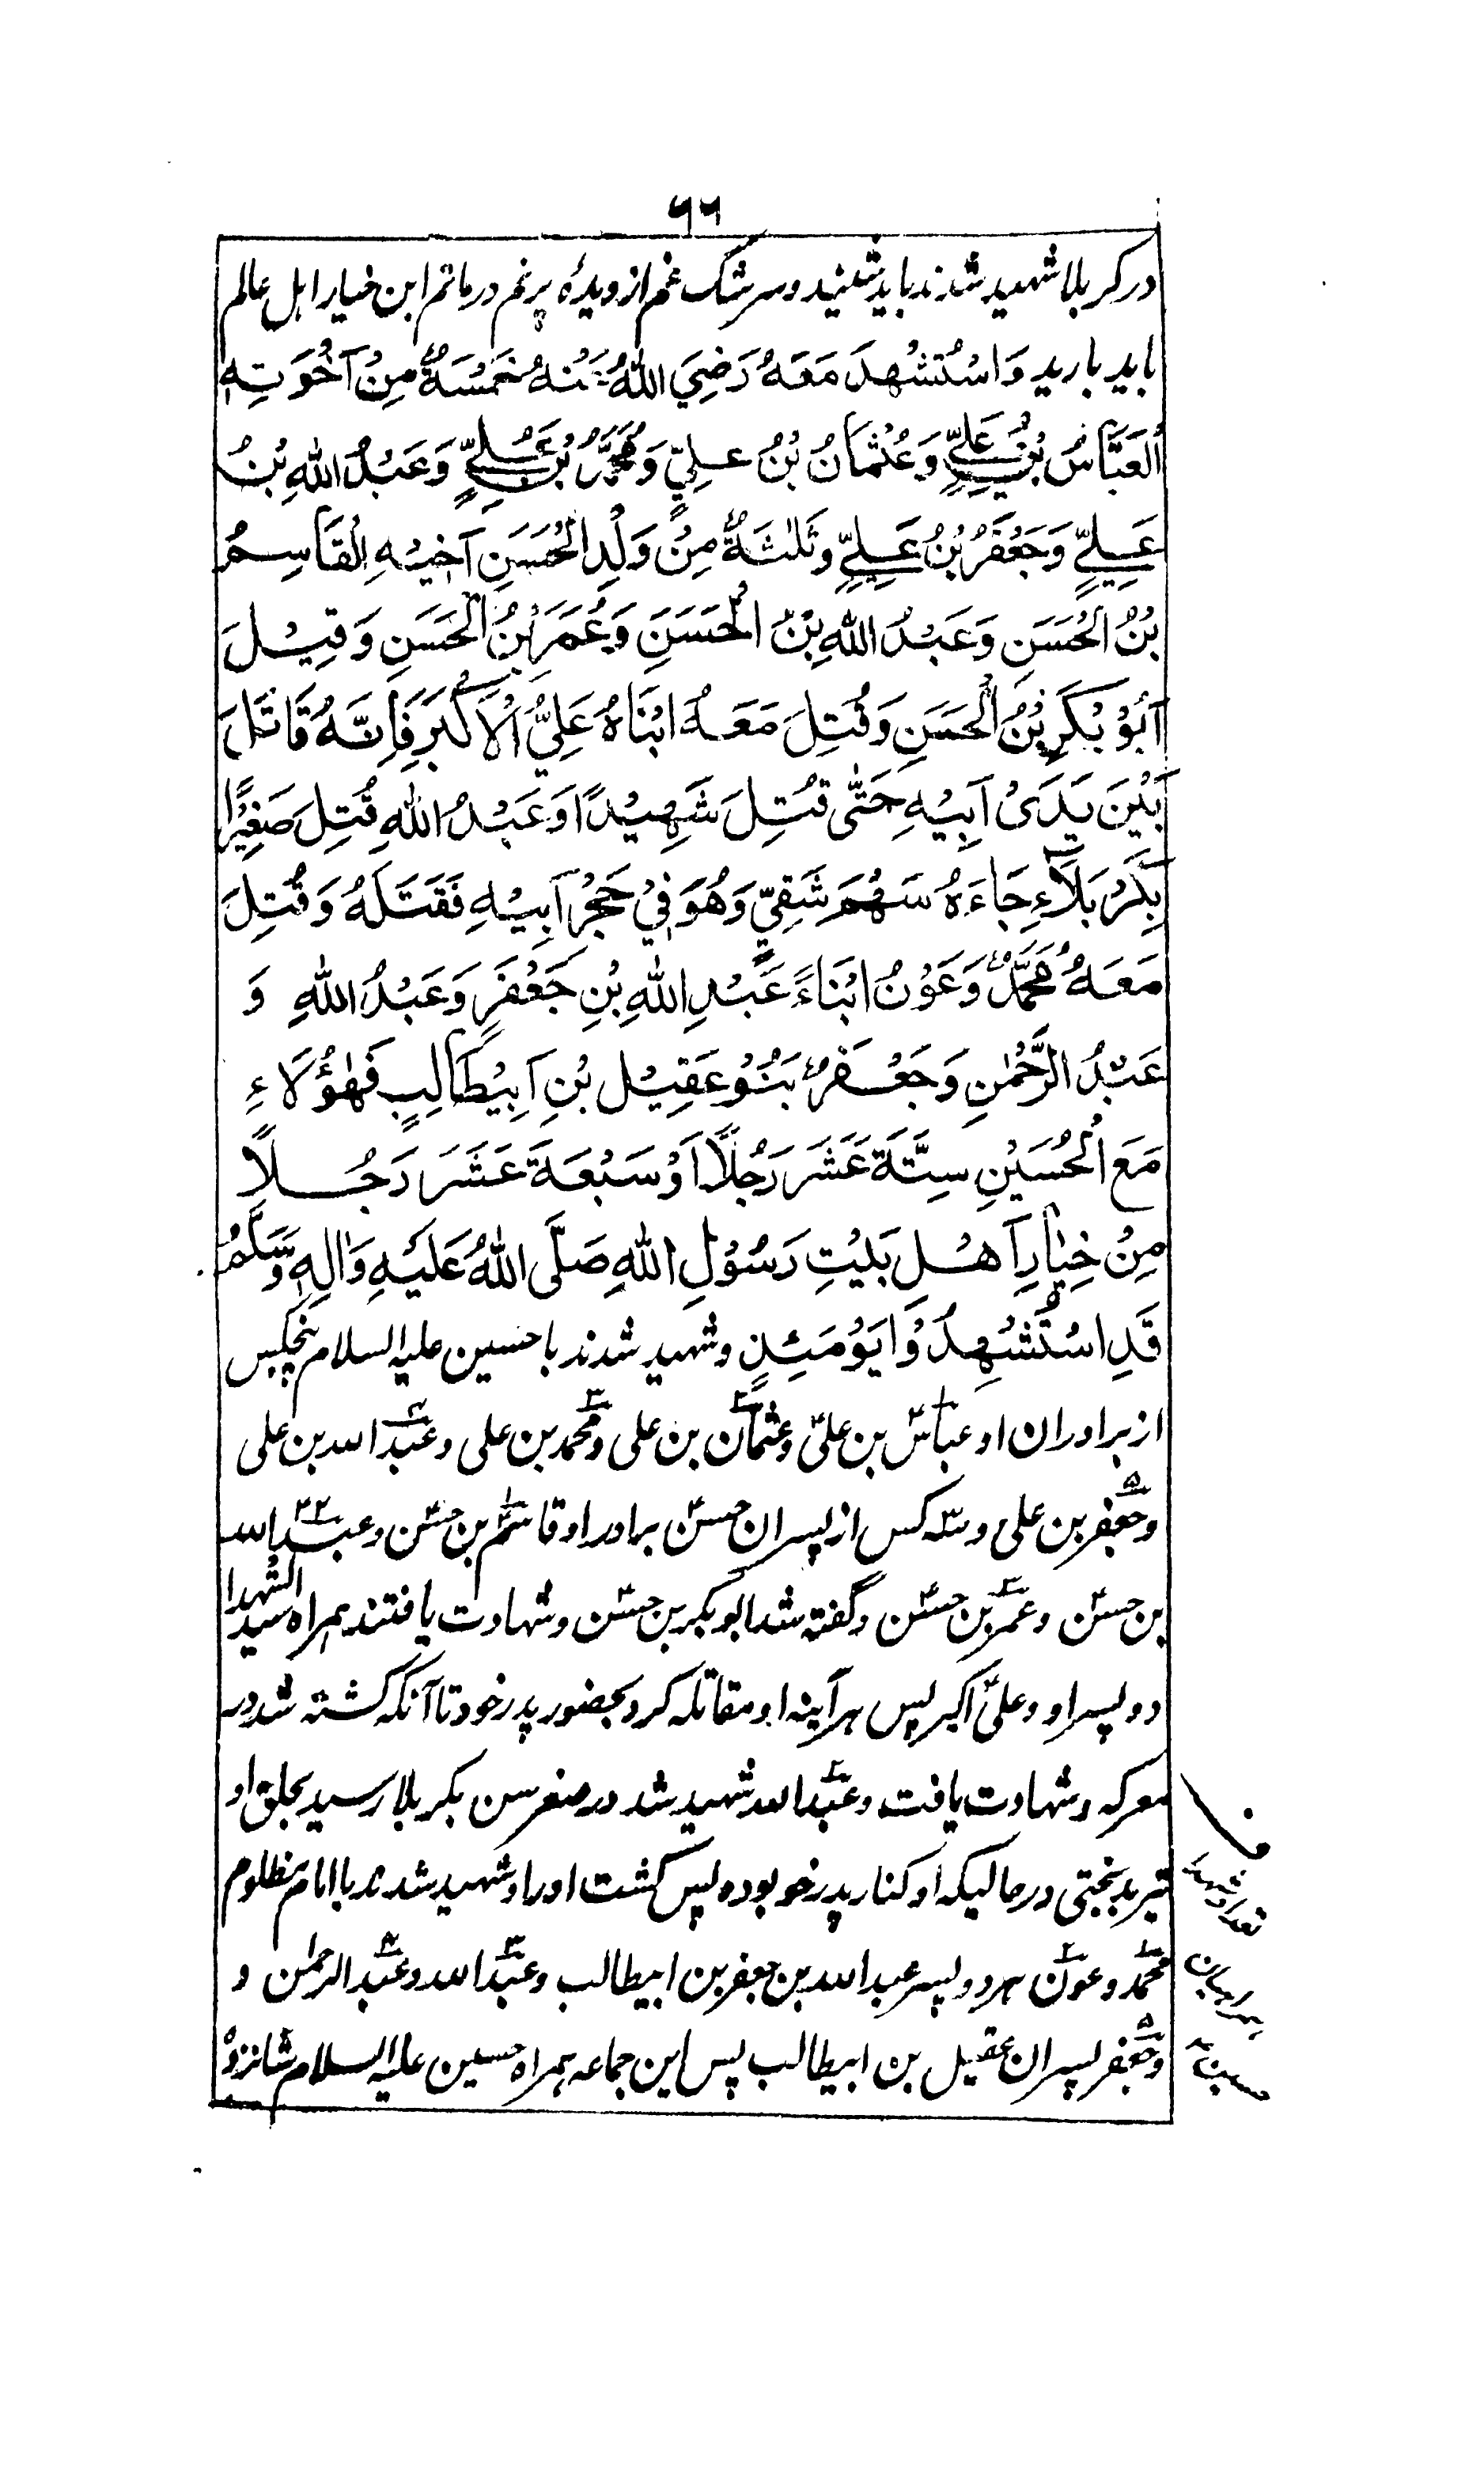 ۶۶
در کربلا شهید شدند باید شنید و سرشک غم از دیدهٔ پرنم در ماتم این خیار اهل عالم
باید بارید وَاسْتُشْهِدَ مَعَهُ رَضِيَ اللهُ عَنْهُ خَمْسَةٌ مِنْ اَخْوَتِهِ
اَلْعَبَّاسُ بْنُ عَلِيٍّ وَعُثْمَانُ بْنُ عَلِيٍّ وَمُحَمَّدُ بْنُ عَلِيٍّ وَعَبْدُ اللهِ بْنُ
عَلِيٍّ وَجَعْفَرُ بْنُ عَلِيٍّ وثَلٰثَةٌ مِنْ وَلَدِ الْحَسَنِ اَخِيْهِ الْقَاسِمُ
بْنُ الْحَسَنِ وَعَبْدُ اللهِ بْنُ الْحَسَنَ وَعُمَرَ بْنُ الْحَسَنِ وَقِيْلَ
اَبُوْ بَكَرِ بْنُ الْحَسَنِ وَقُتِلَ مَعَهُ ابْنَاهُ عَلِيُّ الْاَكْبَرِ فَاِنَّهُ قَاتَلَ
بَيْنَ يَدَىْ اَبِيْهِ حَتّٰى قُتِلَ شَهِيْدًا وَعَبْدُ اللهِ قُتِلَ صَغِيْرًا
بِكَرْبَلَآءِ جَاءَهُ سَهْمَ شَقِيٍّ وَهُوَ فِيْ حَجْرِ اَبِيْهِ فَقَتَلَهُ وَقُتِلَ
مَعَهُ مُحَمَّدٌ وَعَوْنُ ابْنَاءَ عَبْدِ اللهِ بْنِ جَعْفَرٍ وَعَبْدُ اللهِ وَ
عَبْدُ الرَّحْمٰنِ وَجَعْفَرٌ بَنُوْ عَقِيْلِ بْنِ اَبِيْطَالِبٍ فَهٰؤُلَاءِ
مَعَ الْحُسَيْنِ سِتَّةَ عَشَرَ رَجُلًا اَوْ سَبْعَةَ عَشَرَ رَجُلًا
مِنْ خِيَارِ اَهْلِ بَيْتِ رَسُوْلِ اللهِ صَلَّى اللهُ عَلَيْهِ وَاٰلِهٖ وَسَلَّمْ
قَدِ اسْتُشْهِدُوْا يَوْمَئِذٍ و شهید شدند با حسین علیه السلام پنجکس
از برادران او عباس بن علی و عثمان بن علی و محمد بن علی و عبد الله بن علی
و جعفر بن علی و سه کس از پسران حسن برادر او قاسم بن حسن و عبد الله
بن حسن و عمر بن حسن و گفته شد ابوبکر بن حسن و شهادت یافتند همراه سید الشهدا
دو پسر او و علی اکبر پس هر آینه او مقاتله کرد بحضور پدر خود تا آنکه کشته شد در
معرکه و شهادت یافت و عبد الله شهید شد در صغر سن بکربلا رسید بحلق او
تیر بدبختی در حالیکه او کنار پدر خود بوده پس کشت او را و شهید شدند با امام مظلوم
محمد و عون هر دو پسر عبد الله بن جعفر بن ابیطالب و عبد الله و عبد الرحمٰن و
و جعفر پسران عقیل بن ابیطالب پس این جماعه همراه حسین علیه السلام شانزده
ف
تعداد شهدا